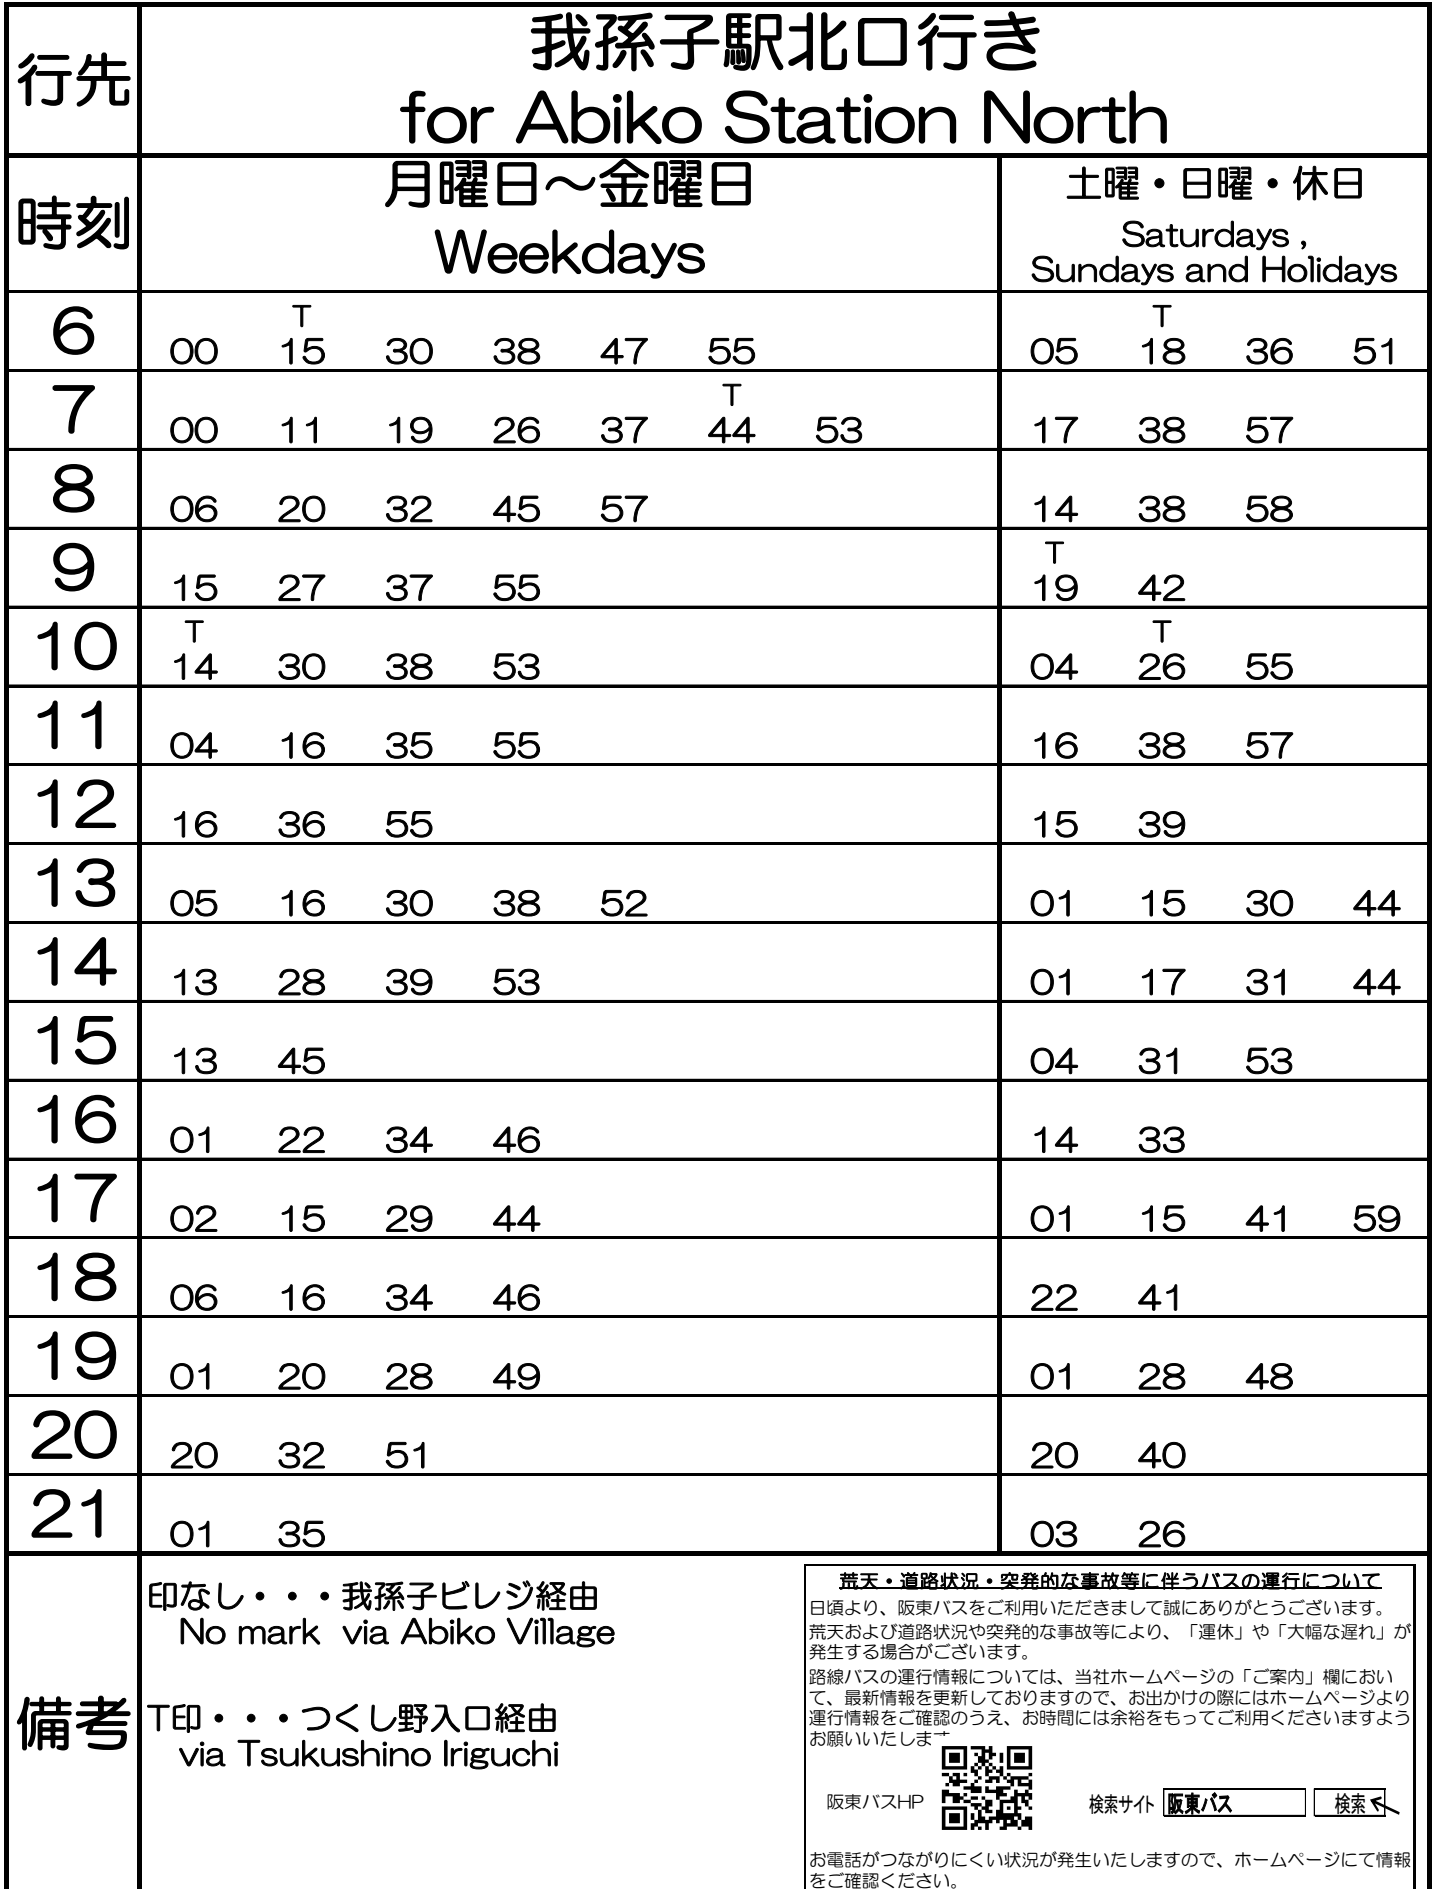 行先
我孫子駅北口行き
for Abiko Station North
時刻
月曜日～金曜日
Weekdays
土曜・日曜・休日
Saturdays ,
Sundays and Holidays
T T
6 00 15 30 38 47 55 05 18 36 51
T
7 00 11 19 26 37 44 53 17 38 57
8 06 20 32 45 57 14 38 58
T
9 15 27 37 55 19 42
T T
10 14 30 38 53 04 26 55
11 04 16 35 55 16 38 57
12 16 36 55 15 39
13 05 16 30 38 52 01 15 30 44
14 13 28 39 53 01 17 31 44
15 13 45 04 31 53
16 01 22 34 46 14 33
17 02 15 29 44 01 15 41 59
18 06 16 34 46 22 41
19 01 20 28 49 01 28 48
20 20 32 51 20 40
21 01 35 03 26
備考
印なし・・・我孫子ビレジ経由
No mark via Abiko Village
T印・・・つくし野入口経由
via Tsukushino Iriguchi
荒天・道路状況・突発的な事故等に伴うバスの運行について
日頃より、阪東バスをご利用いただきまして誠にありがとうございます。
荒天および道路状況や突発的な事故等により、「運休」や「大幅な遅れ」が
発生する場合がございます。
路線バスの運行情報については、当社ホームページの「ご案内」欄におい
て、最新情報を更新しておりますので、お出かけの際にはホームページより
運行情報をご確認のうえ、お時間には余裕をもってご利用くださいますよう
お願いいたしま
阪東バスHP
検索サイト 阪東バス 検索
お電話がつながりにくい状況が発生いたしますので、ホームページにて情報
をご確認ください。